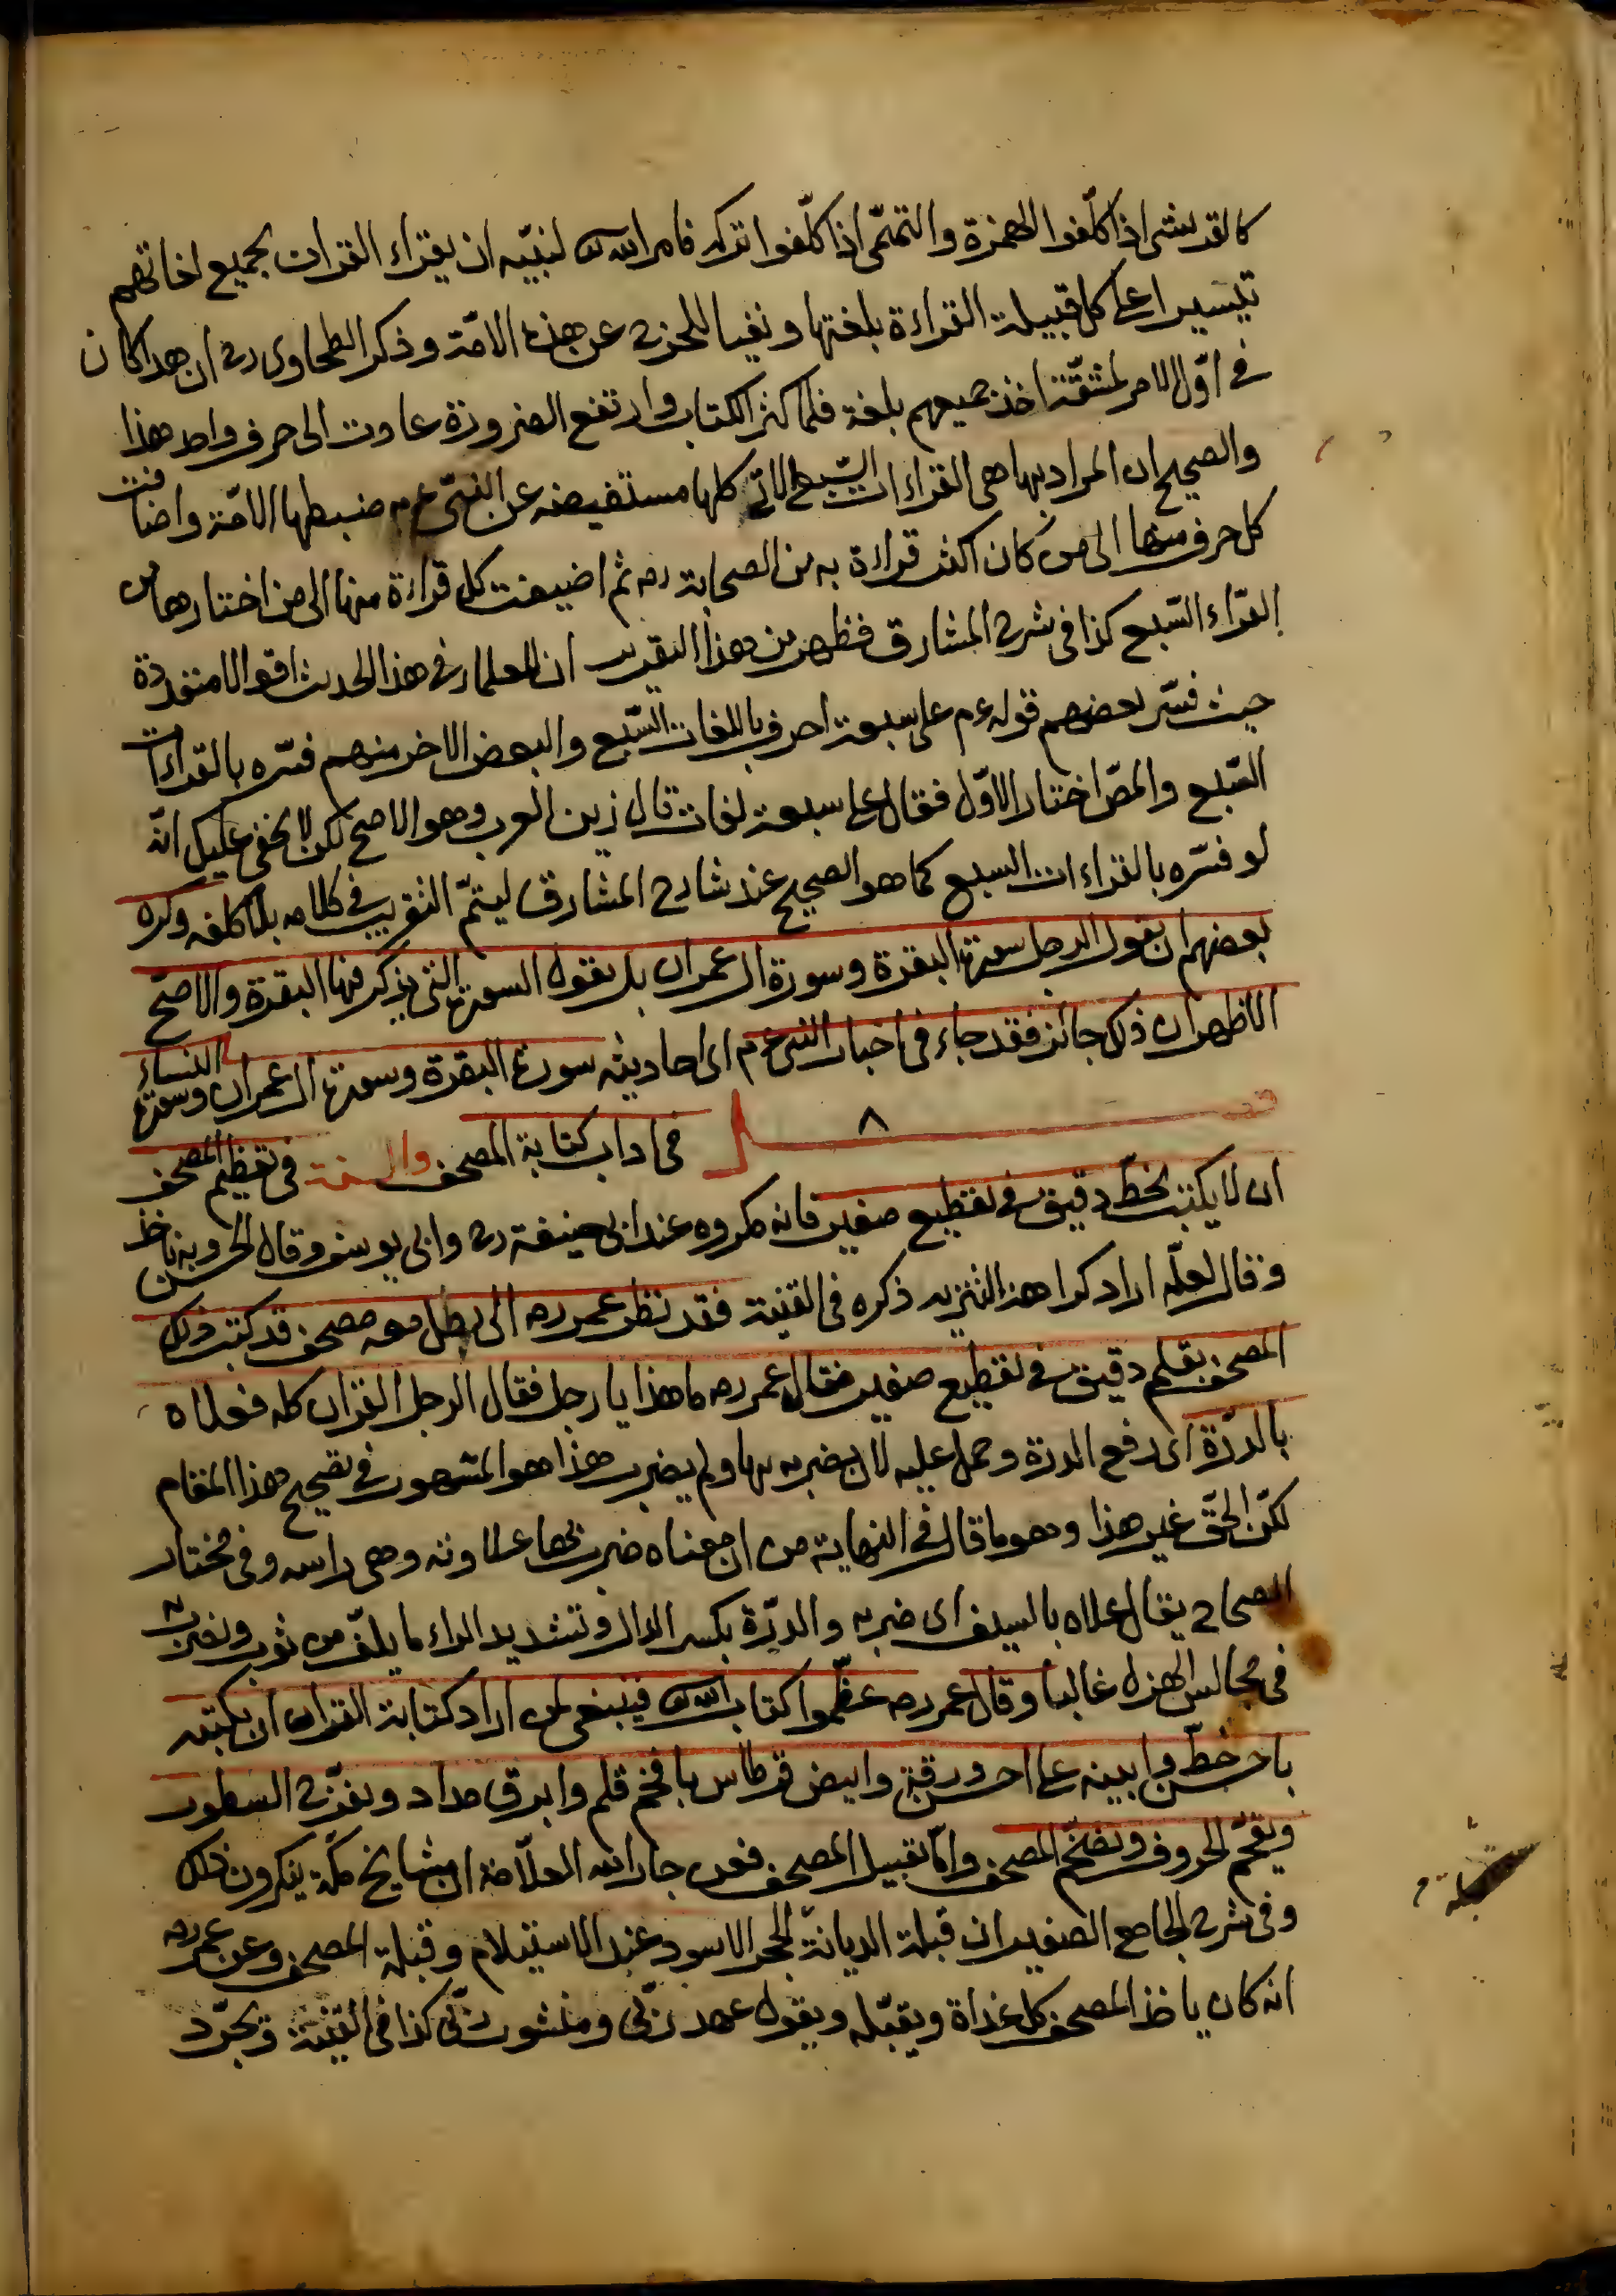 كالقريشى اذا كلّفوا الهمزة والتميمى اذا كلّفوا تركه فامر الله تع لنبيّه ان يقراء القران بجميع لغاتهم
تيسيرا على كل قبيلة القراءة بلغتها ونفيا للحرج عن هذه الامّة وذكر الطحاوى رح ان هذا كان
فى اوّل الامر لمشقّة اخذ جميعهم بلغة فلما كثر الكتاب وارتفع الضرورة عادت الى حرف واحد هذا
والصحيح ان المراد بها هى القراءات السّبع التى كلها مستفيضه عن النبىّ عم ضبطها الامّة واضافت
كل حرف منها الى من كان اكثر قراءة به من الصحابة رض ثم اضيفت كل قراءة منها الى من اختارها من
القرّاء السّبع كذا فى شرح المشارق فظهر من هذا التقرير ان للعلماء فى هذا الحديث اقوالا متعددة
حيث فسّر بعضهم قوله عم على سبعة احرف باللغات السّبع والبعض الاخر منهم فسّره بالقراءات
السّبع والمص اختار الاوّل فقال على سبعة لغات قال زين العرب وهو الاصح لكن لا يخفى عليك انّه
لو فسّره بالقراءات السبع كما هو الصحيح عند شارح المشارق ليتمّ التقريب فى كلامه بلا كلفه وكره
بعضهم ان يقول الرجل سورة البقرة وسورة ال عمران بل يقول السورة التى يذكر فيها البقرة والاصحّ
الاظهر ان ذلك جائز فقد جاء فى اخبار النبى عم اى احاديثه سورة البقرة وسورة ال عمران وسورة النساء
فصل ٨ فى اداب كتابة المصحف والسنة فى تعظيم المصحف
ان لا يكتب بخطّ دقيق فى تقطيع صغير فانه مكروه عند ابى حنيفة رح وابى يوسف وقال الحسن وبه ناخذ
وقال لعلّه اراد كراهة التنزيه ذكره فى القنية فقد نظر عمر رض الى رجل معه مصحف قد كتب ذلك
المصحف بقلم دقيق فى تقطيع صغير فقال عمر رض ما هذا يا رجل فقال الرجل القران كله فعلاه
بالدرّة اى رفع الدرة وحمل عليه لان يضربه بها ولم يضرب هذا هو المشهور فى تصحيح هذا المقام
لكنّ الحقّ غير هذا وهو ما قال فى النهاية من ان معناه ضرب بها علاوته وهى راسه وفى مختار
الصحاح يقال علاه بالسيف اى ضربه والدرّة بكسر الدال وتشديد الراء ما يلفّ من ثوب ويضرب به
فى مجالس الهزل غالبا وقال عمر رض عظّموا كتاب الله تع فينبغى لمن اراد كتابة القران ان يكتبه
باحسن خطّ وابينه على احسن ورقة وابيض قرطاس بافخم قلم وابرق مداد ويفرّج السطور
ويفخّم الحروف ويضخّم المصحف وامّا تقبيل المصحف فعن جار الله العلّامة ان مشايخ مكّة ينكرون ذلك
وفى شرح الجامع الصغير ان قبلة الديانة للحجر الاسود عند الاستيلام وقبلة المصحف وعن عمر رض
انه كان ياخذ المصحف كل غداة ويقبّله ويقول عهد ربّى ومنشور ربّى كذا فى القنية ويجرّد